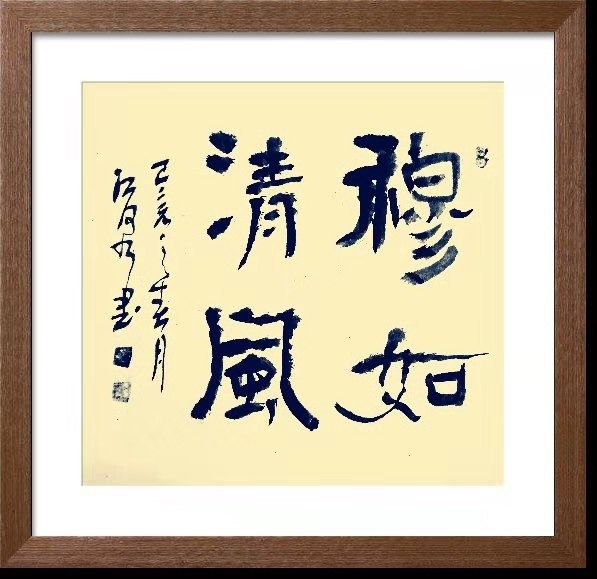 穆如
清風
己亥之春月
书